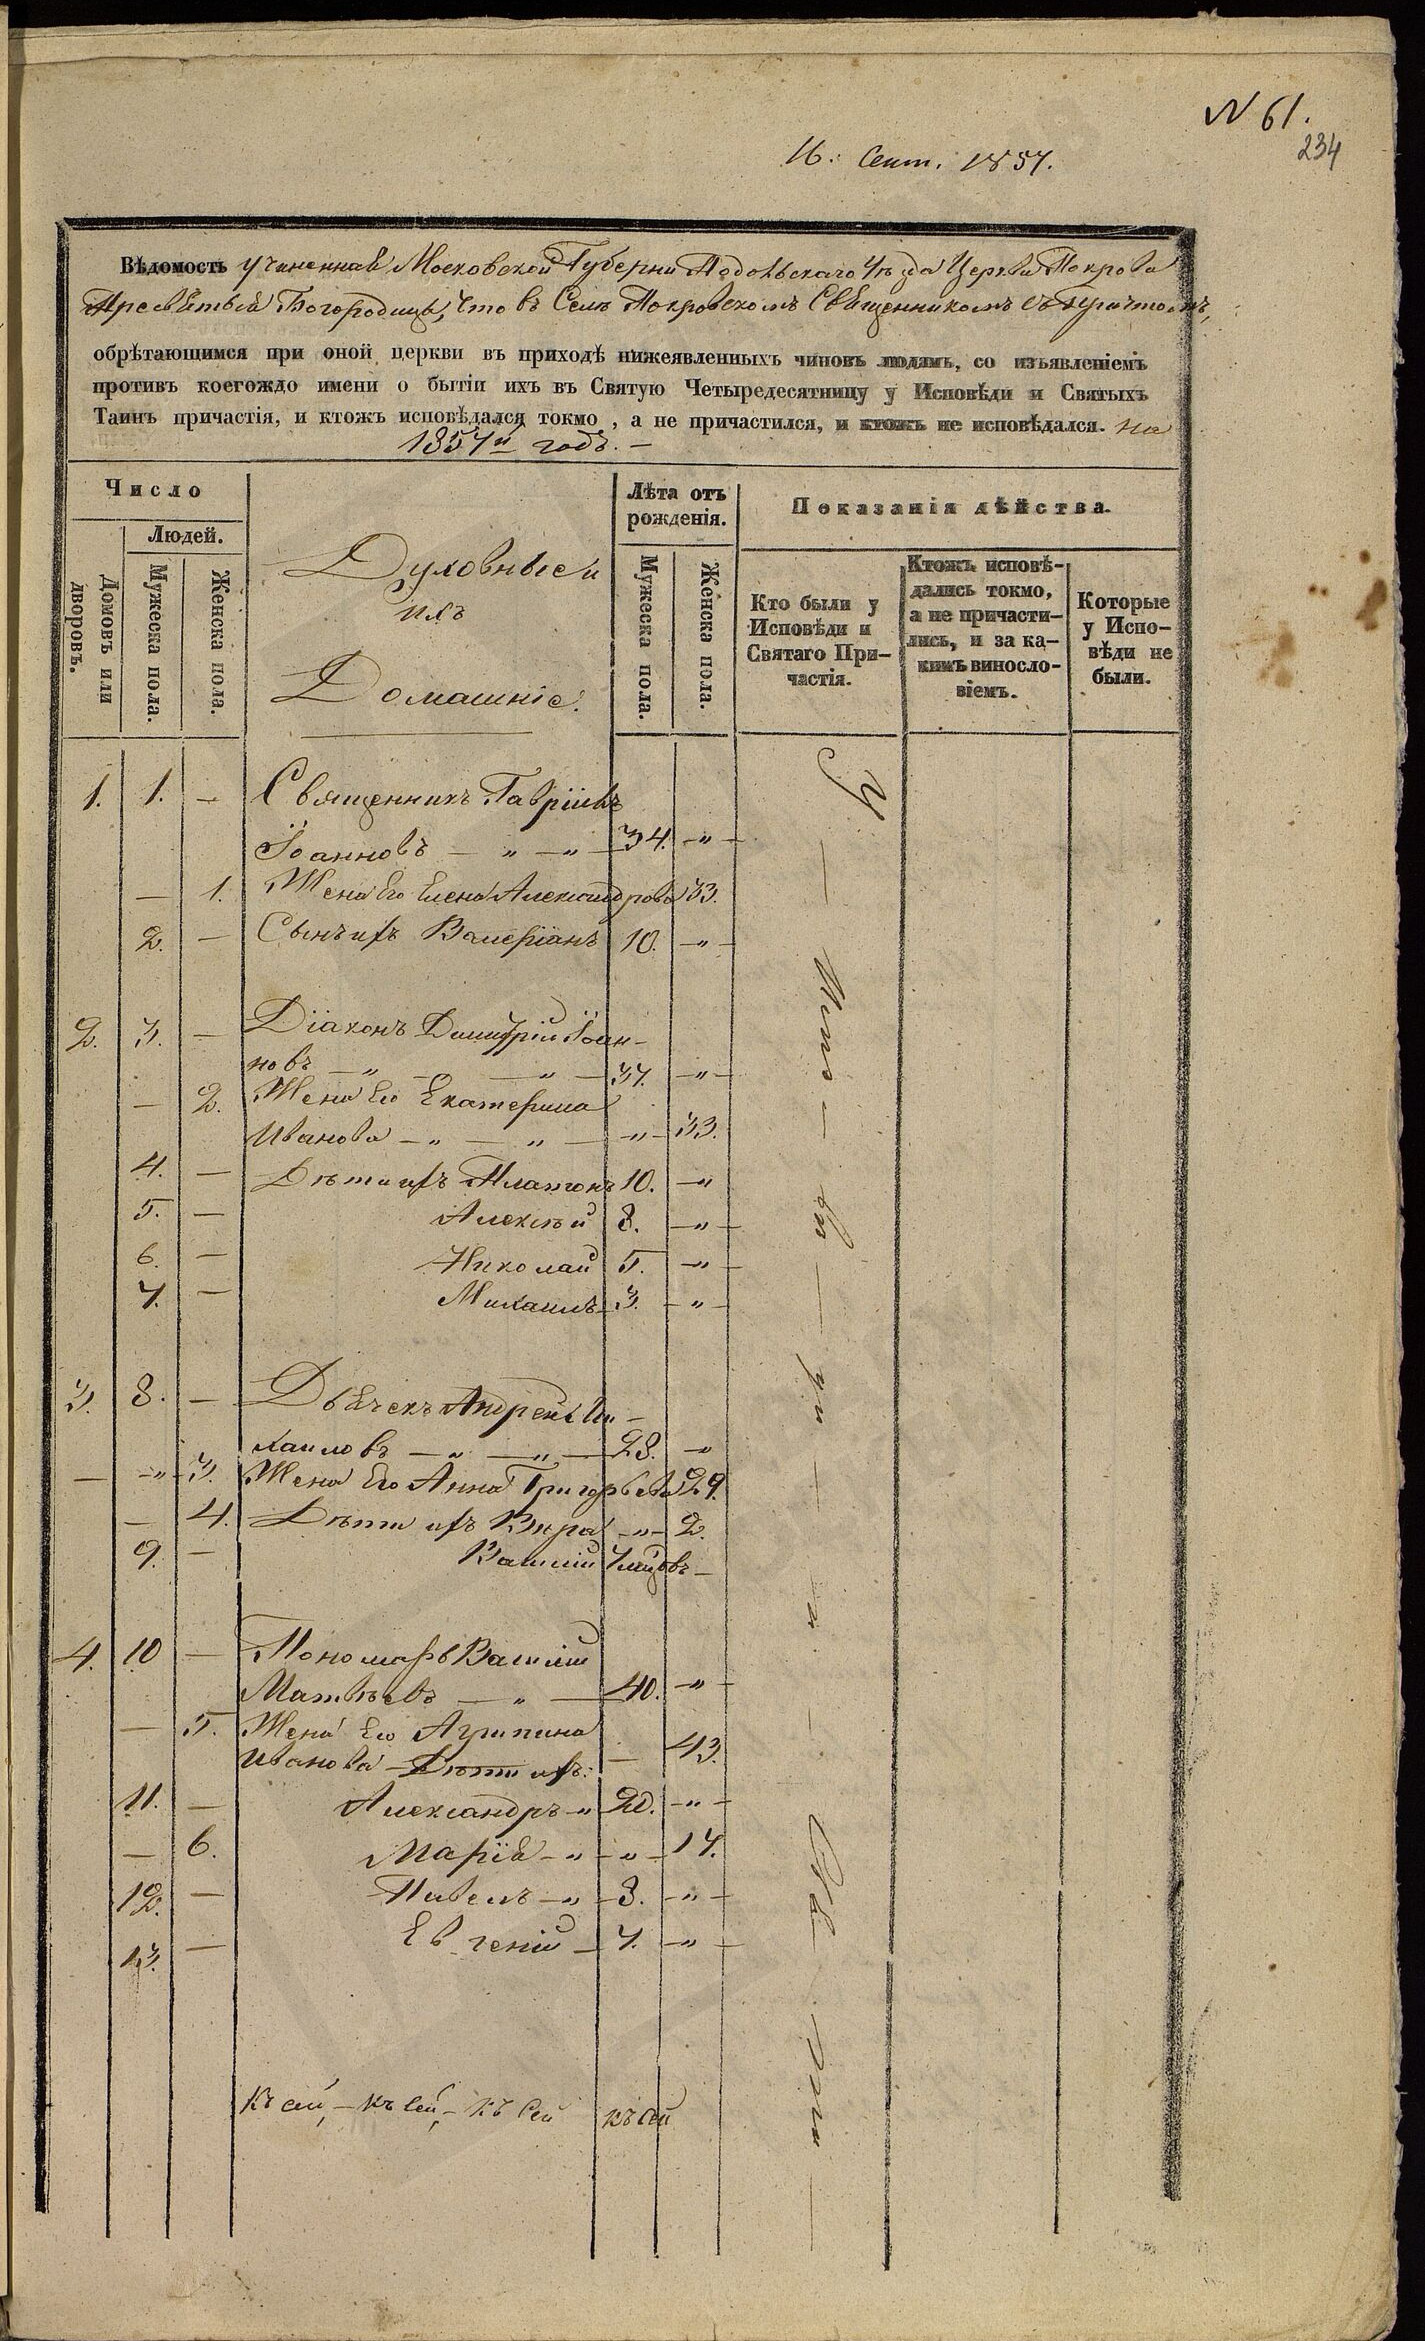 N 61.
234
16. Сент. 1857.
Вѣдомость учиненная Московской Губерни Подольскаго Уѣзда Церкви Покрова
Пресвятыя Богородицы, что въ Селѣ Покровскомъ Священникомъ съ причтомъ,
обрѣтающимся при оной церкви въ приходѣ нижеявленныхъ чиновъ людямъ, со изъявленіемъ
противъ коегождо имени о бытіи ихъ въ Святую Четыредесятницу у Исповѣди и Святыхъ
Таинъ причастія, и ктожъ исповѣдался токмо, а не причастился, и ктожъ не исповѣдался. на
1857й годъ. —
Число
Людей.
Домовъ или дворовъ.
Мужеска пола.
Женска пола.
Духовные и
ихъ
Домашніе.
Лѣта отъ рожденія.
Мужеска пола.
Женска пола.
Показанія дѣйства.
Кто были у Исповѣди и Святаго При-частія.
Ктожъ исповѣ-дались токмо, а не причасти-лись, и за ка-кимъ винословіемъ.
Которые у Испо-вѣди не были.
1. 1. — Священникъ Гавріилъ
Іоанновъ — " — " — 34. — " —
— 1. Жена Его Елена Александрова 33.
2. — Сынъ ихъ Валеріанъ 10. — " —
2. 3. — Діаконъ Димитрій Іоан-
новъ — " — " — 37. — " —
— 2. Жена Его Екатерина
Иванова — " — " — " — 33.
4. — Дѣти ихъ Платонъ 10. — "
5. — Алексѣй 8. — " —
6. — Николай 5. — " —
7. — Михаилъ — 3. — " —
3. 8. — Дьячекъ Андрей Ми-
хаиловъ — " — " — 28. — "
— — " — 3. Жена Его Анна Григорьева 29.
— 4. Дѣти ихъ Вѣра — " — 2.
9. — Василій 7 мѣсяцовъ —
4. 10 — Пономарь Василій
Матвѣевъ — " — 40. — " —
— 5. Жена Его Агрипина
Иванова — Дѣти ихъ: — 43.
11. — Александръ — " 20. — " —
— 6. Марія — " — " — 17.
12. — Павелъ — " — 8. — " —
13. — Евгеній — 7. — " —
Къ сей, — къ сей, — къ Сей къ сей